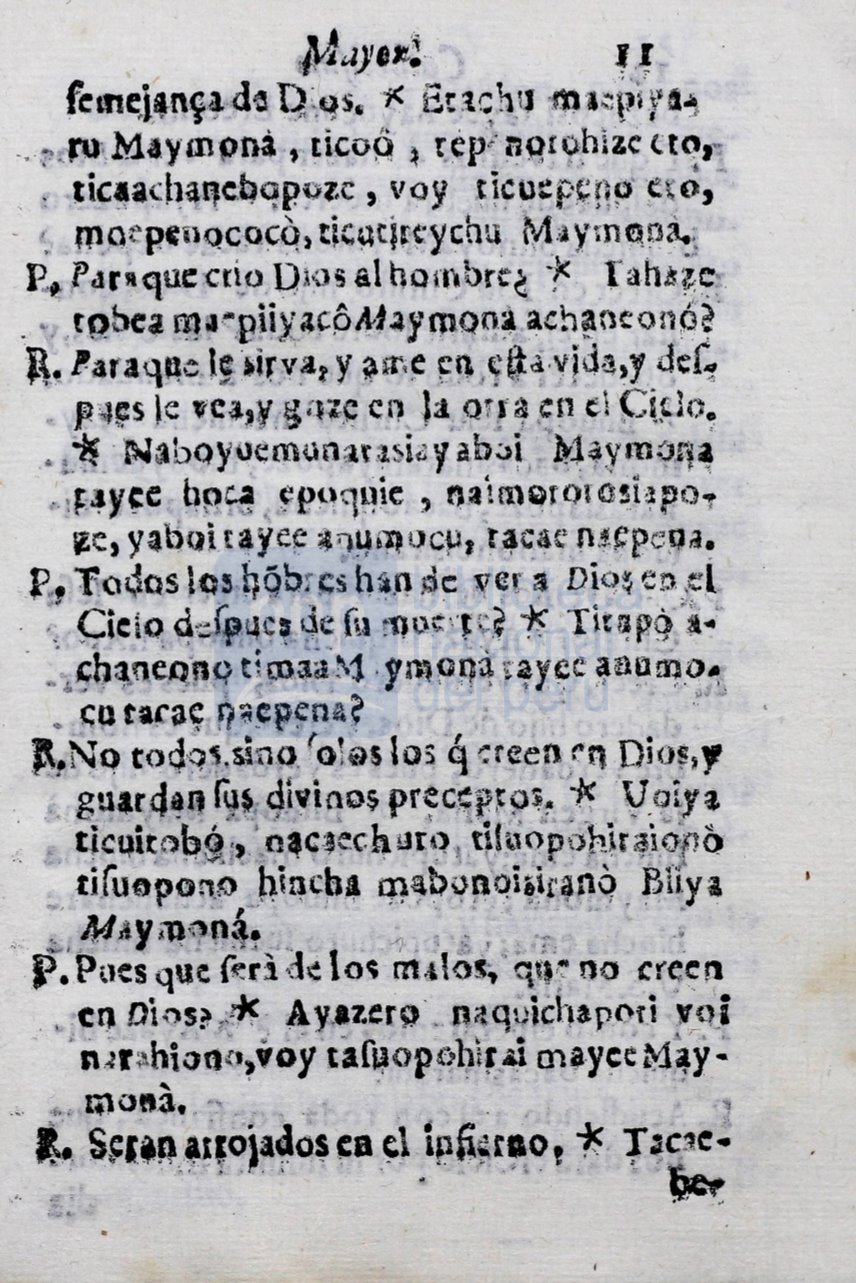 Mayor. 11
semejança de Dios. * Etachu maepiya-
ru Maymonà, ticoô, rep norohize eto,
ticaachanebopoze, voy ticuepeno eto,
moepenococò, ticutireychu Maymonà.
P. Paraque criò Dios al hombre? * Tahaze
tobea maepiiyacô Maymona achaneonó?
R. Paraque le sirva, y ame en esta vida, y des-
pues le vea, y goze en la otra en el Cielo.
* Naboyuemunarasia yaboi Maymona
tayee hoca epoquie, naimororosiapo-
ze, yaboi tayee anumocu, tacae naepena.
P. Todos los hõbres han de ver a Dios en el
Cielo despues de su muerte? * Titapò a-
chaneono timaa Maymonà tayee anumo-
cu tacae naepena?
R. No todos, sino solos los q́ creen en Dios, y
guardan sus divinos preceptos. * Voiya
ticuitobó, nacaechuro tisuopohiraionò
tisuopono hincha mabonoisiranò Biiya
Maymoná.
P. Pues que serà de los malos, que no creen
en Dios? * Ayazero naquichapoti voi
narahiono, voy tasuopohirai mayee May-
monà.
R. Seran arrojados en el infierno. * Tacae-
be-